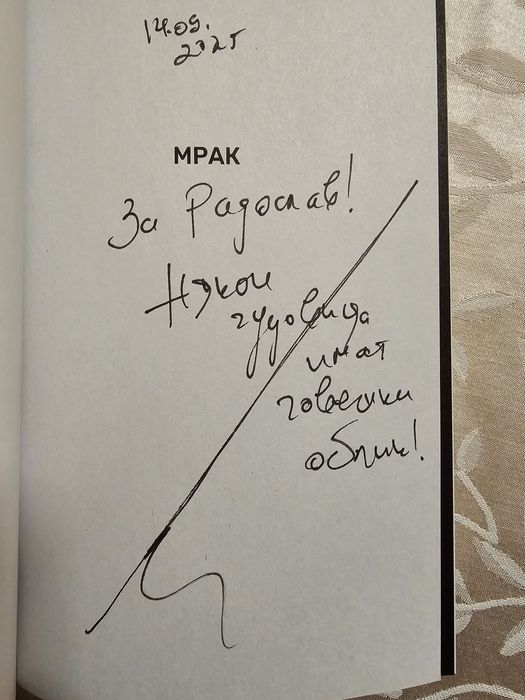 14.09.
2025
МРАК
За Радослав!
Някои
чудовища
имат
човешки
облик!